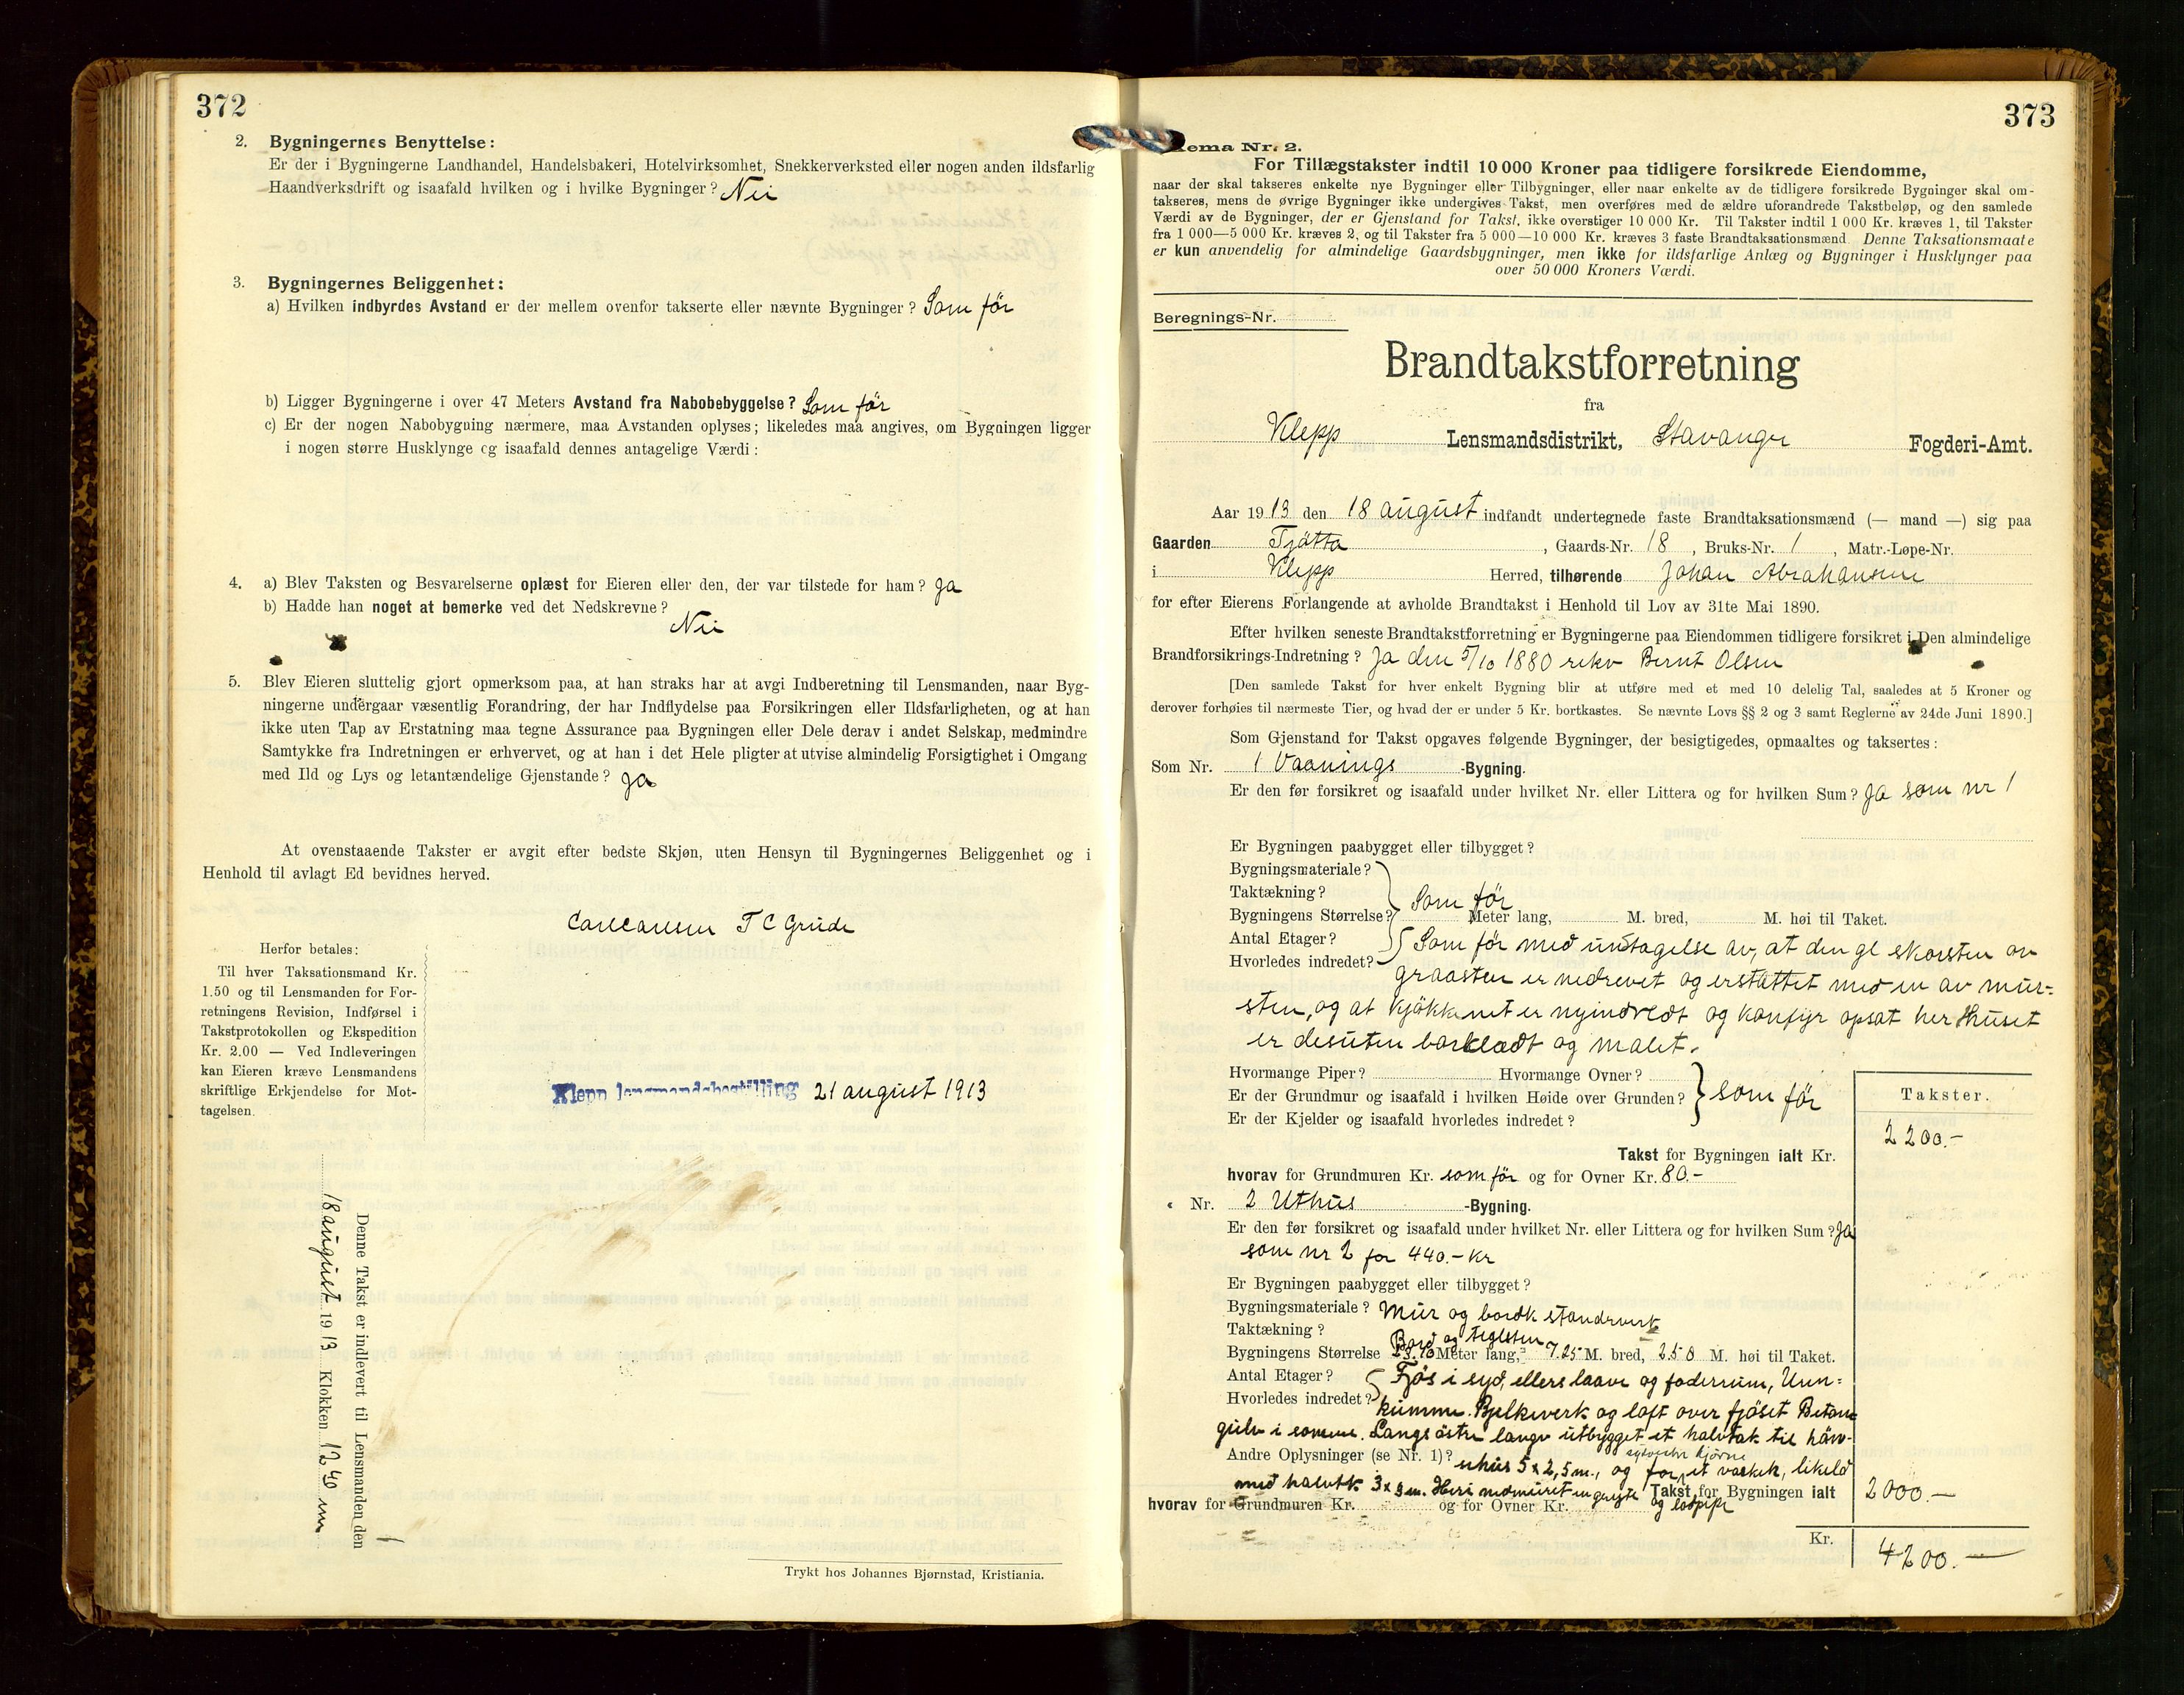 372
2. Bygningernes Benyttelse:
Er der i Bygningerne Landhandel, Handelsbakeri, Hotelvirksomhet, Snekkerverksted eller nogen anden ildsfarlig
Haandverksdrift og isaafald hvilken og i hvilke Bygninger? Nei
3. Bygningernes Beliggenhet:
a) Hvilken indbyrdes Avstand er der mellem ovenfor takserte eller nævnte Bygninger? Som før
b) Ligger Bygningerne i over 47 Meters Avstand fra Nabobebyggelse? Som før
c) Er der nogen Nabobygning nærmere, maa Avstanden oplyses; likeledes maa angives, om Bygningen ligger
i nogen større Husklynge og isaafald dennes antagelige Værdi:
4. a) Blev Taksten og Besvarelserne oplæst for Eieren eller den, der var tilstede for ham? Ja
b) Hadde han noget at bemerke ved det Nedskrevne?
Nei
5. Blev Eieren sluttelig gjort opmerksom paa, at han straks har at avgi Indberetning til Lensmanden, naar Byg-
ningerne undergaar væsentlig Forandring, der har Indflydelse paa Forsikringen eller Ildsfarligheten, og at han
ikke uten Tap av Erstatning maa tegne Assurance paa Bygningen eller Dele derav i andet Selskap, medmindre
Samtykke fra Indretningen er erhvervet, og at han i det Hele pligter at utvise almindelig Forsigtighet i Omgang
med Ild og Lys og letantændelige Gjenstande? Ja
At ovenstaaende Takster er avgit efter bedste Skjøn, uten Hensyn til Bygningernes Beliggenhet og i
Henhold til avlagt Ed bevidnes herved.
Carl Carlsen T C Grude
Herfor betales:
Til hver Taksationsmand Kr.
1.50 og til Lensmanden for For-
retningens Revision, Indførsel i
Takstprotokollen og Ekspedition
Kr. 2.00 — Ved Indleveringen
kan Eieren kræve Lensmandens
skriftlige Erkjendelse for Mot-
tagelsen.
Klepp lensmandsbestilling 21 august 1913
Denne Takst er indlevert til Lensmanden den
18 august 1913 Klokken 12 40 em
Trykt hos Johannes Bjørnstad, Kristiania.
373
ema Nr. 2.
For Tillægstakster indtil 10 000 Kroner paa tidligere forsikrede Eiendomme,
naar der skal takseres enkelte nye Bygninger eller Tilbygninger, eller naar enkelte av de tidligere forsikrede Bygninger skal om-
takseres, mens de øvrige Bygninger ikke undergives Takst, men overføres med de ældre uforandrede Takstbeløp, og den samlede
Værdi av de Bygninger, der er Gjenstand for Takst, ikke overstiger 10 000 Kr. Til Takster indtil 1 000 Kr. kræves 1, til Takster
fra 1 000—5 000 Kr. kræves 2, og til Takster fra 5 000—10 000 Kr. kræves 3 faste Brandtaksationsmænd. Denne Taksationsmaate
er kun anvendelig for almindelige Gaardsbygninger, men ikke for ildsfarlige Anlæg og Bygninger i Husklynger paa
over 50 000 Kroners Værdi.
Beregnings-Nr.
Brandtakstforretning
fra
Klepp Lensmandsdistrikt, Stavanger Fogderi-Amt.
Aar 1913 den 18 august indfandt undertegnede faste Brandtaksationsmænd (— mand —) sig paa
Gaarden Tjøtta, Gaards-Nr. 18, Bruks-Nr. 1, Matr.-Løpe-Nr.
i Klepp Herred, tilhørende Johan Abrahamsen
for efter Eierens Forlangende at avholde Brandtakst i Henhold til Lov av 31te Mai 1890.
Efter hvilken seneste Brandtakstforretning er Bygningerne paa Eiendommen tidligere forsikret i Den almindelige
Brandforsikrings-Indretning? Ja den 5/10 1880 rekv Bernt Olsen
[Den samlede Takst for hver enkelt Bygning blir at utføre med et med 10 delelig Tal, saaledes at 5 Kroner og
derover forhøies til nærmeste Tier, og hvad der er under 5 Kr. bortkastes. Se nævnte Lovs §§ 2 og 3 samt Reglerne av 24de Juni 1890.]
Som Gjenstand for Takst opgaves følgende Bygninger, der besigtigedes, opmaaltes og taksertes:
Som Nr. 1 Vaanings -Bygning.
Er den før forsikret og isaafald under hvilket Nr. eller Littera og for hvilken Sum? Ja som nr 1
Er Bygningen paabygget eller tilbygget?
Bygningsmateriale?
Taktækning? Som før
Bygningens Størrelse? Meter lang, M. bred, M. høi til Taket.
Antal Etager? Som før med undtagelse av, at den gl skorsten av
Hvorledes indredet? graasten er nedrevet og erstattet med en av mur=
sten, og at kjøkkenet er nyindredt og komfyr opsat her Huset
er desuten bordklædt og malet.
Hvormange Piper? Hvormange Ovner?
Er der Grundmur og isaafald i hvilken Høide over Grunden? som før
Er der Kjelder og isaafald hvorledes indredet?
Takster.
Takst for Bygningen ialt Kr. 2200.-
hvorav for Grundmuren Kr. som før og for Ovner Kr. 80.-
" Nr. 2 Uthus -Bygning.
Er den før forsikret og isaafald under hvilket Nr. eller Littera og for hvilken Sum? Ja
som nr 2 for 440.- Kr
Er Bygningen paabygget eller tilbygget?
Bygningsmateriale? Mur og bordk standverk
Taktækning? Bord og teglsten
Bygningens Størrelse Meter lang, 7.25 M. bred, 2.50 M. høi til Taket.
Antal Etager? Fjøs i syd, ellers laave og foderrum, Urin=
Hvorledes indredet? kumme. Bjelkeverk og loft over fjøset Beton=
gulv i samme. Langs østre langv utbygget et halvtak til høn=
Andre Oplysninger (se Nr. 1)? sehus 5 x 2,5 m., og for et vaskeh, likeld
med halvtk 3 x 3 m. Heri nedmuret en gryte og lodpipe
Takst for Bygningen ialt 2000.-
hvorav for Grundmuren Kr. og for Ovner Kr.
Kr. 4200.—